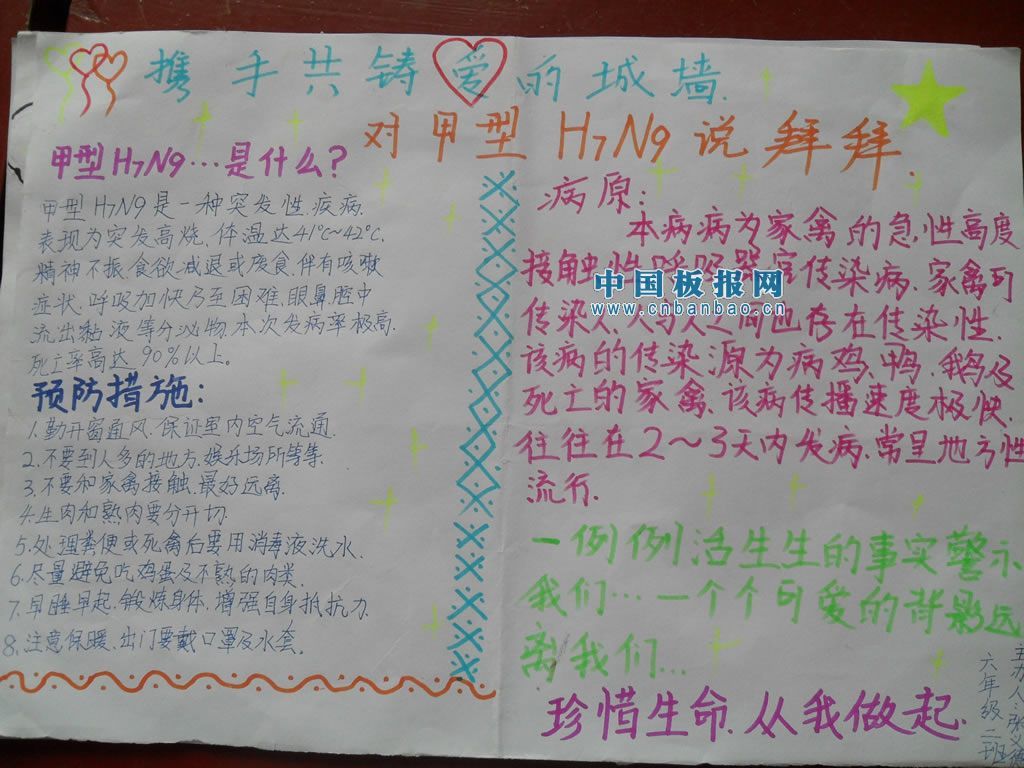 携手共铸爱的城墙.
对甲型H7N9说拜拜.
甲型H7N9…是什么?
甲型H7N9是一种突发性.疾病.
表现为突发高烧、体温达41℃~42℃.
精神不振.食欲减退或废食.伴有咳嗽
症状.呼吸加快乃至困难.眼鼻腔中
流出黏液等分泌物.本次发病率极高.
死亡率高达90%以上。
预防措施:
1.勤开窗通风.保证室内空气流通.
2.不要到人多的地方.娱乐场所等等.
3.不要和家禽接触.最好远离.
4.生肉和熟肉要分开切.
5.处理粪便或死禽后要用消毒液洗水.
6.尽量避免吃鸡蛋及不熟的肉类.
7.早睡早起.锻炼身体.增强自身抵抗力.
8.注意保暖.出门要戴口罩及水套.
病原:
本病病为家禽的急性高度
接触性呼吸器官传染病.家禽到
传染人.人与人之间也存在传染性.
该病的传染源为病鸡、鸭、鹅及
死亡的家禽.该病传播速度极快.
往往在2~3天内发病.常呈地方性
流行.
中国板报网
www.cnbanbao.cn
一例例活生生的事实警示
我们…一个个可爱的背影远
离我们…
珍惜生命.从我做起.
主办人:张义德
六年级二班